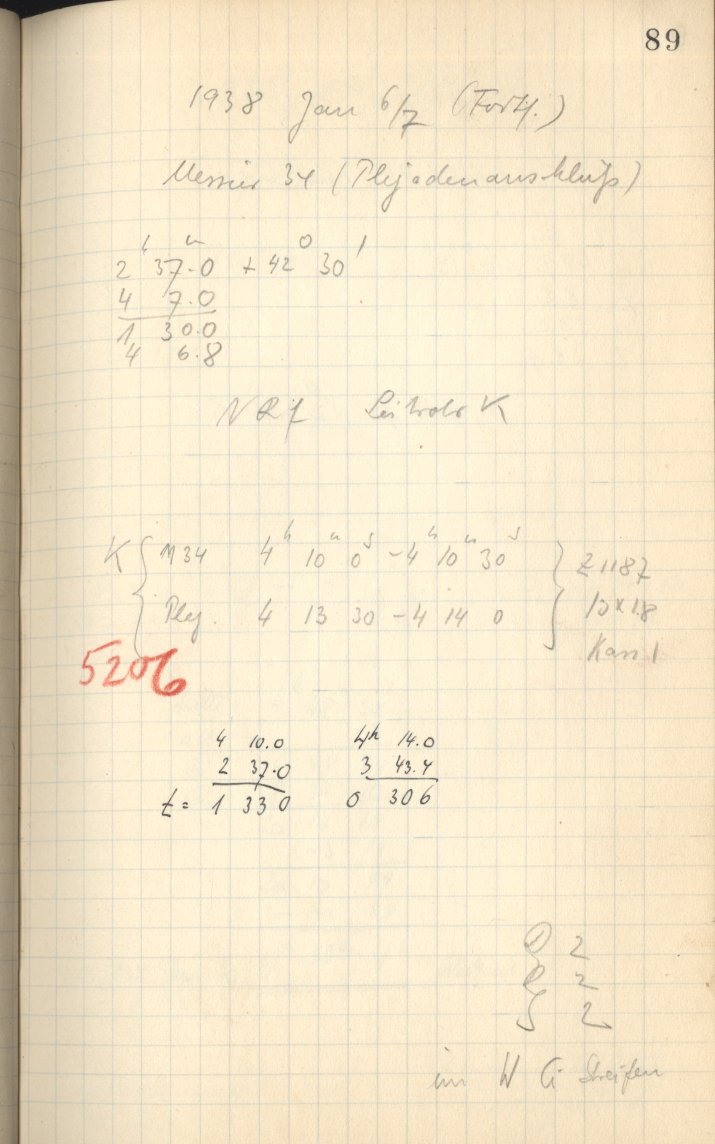 89
1938 Jan 6/7 (Forts.)
Messier 34 (Plejadenanschluß)
2ʰ 37ᵐ.0 + 42° 30'
4 7.0
1 30.0
4 6.8
Leitrohr K
K { M34 4ʰ 10ᵐ 0ˢ - 4ʰ 10ᵐ 30ˢ } Z 1187
Plej. 4 13 30 - 4 14 0 13 x 18
Kass 1
5206
4 10.0 4ʰ 14.0
2 37.0 3 43.4
t = 1 33 0 0 30 6
D 2
R 2
S 2
im W G Streifen